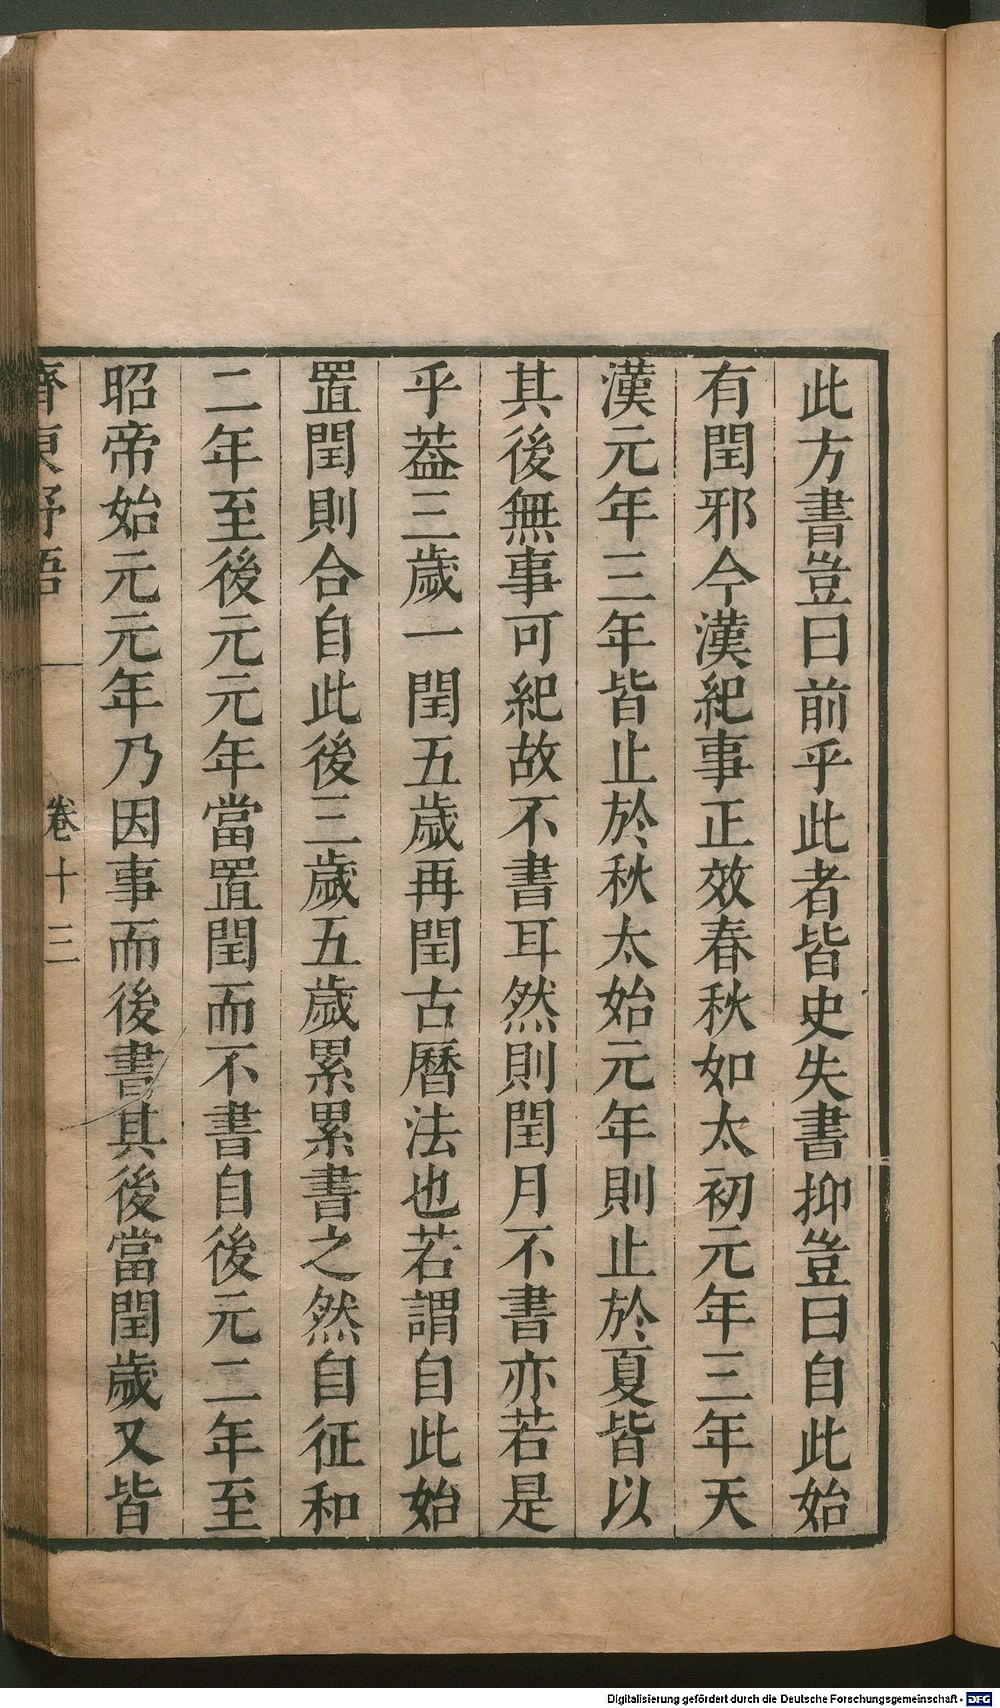 此方書豈曰前乎此者皆史失書抑豈曰自此始
有閏邪今漢紀事正效春秋如太初元年三年天
漢元年三年皆止於秋太始元年則止於夏皆以
其後無事可紀故不書耳然則閏月不書亦若是
乎葢三歲一閏五歲再閏古曆法也若謂自此始
置閏則合自此後三歲五歲累累書之然自征和
二年至後元元年當置閏而不書自後元二年至
昭帝始元元年乃因事而後書其後當閏歲又皆
齊東野語 卷十三
Digitalisierung gefördert durch die Deutsche Forschungsgemeinschaft - DFG